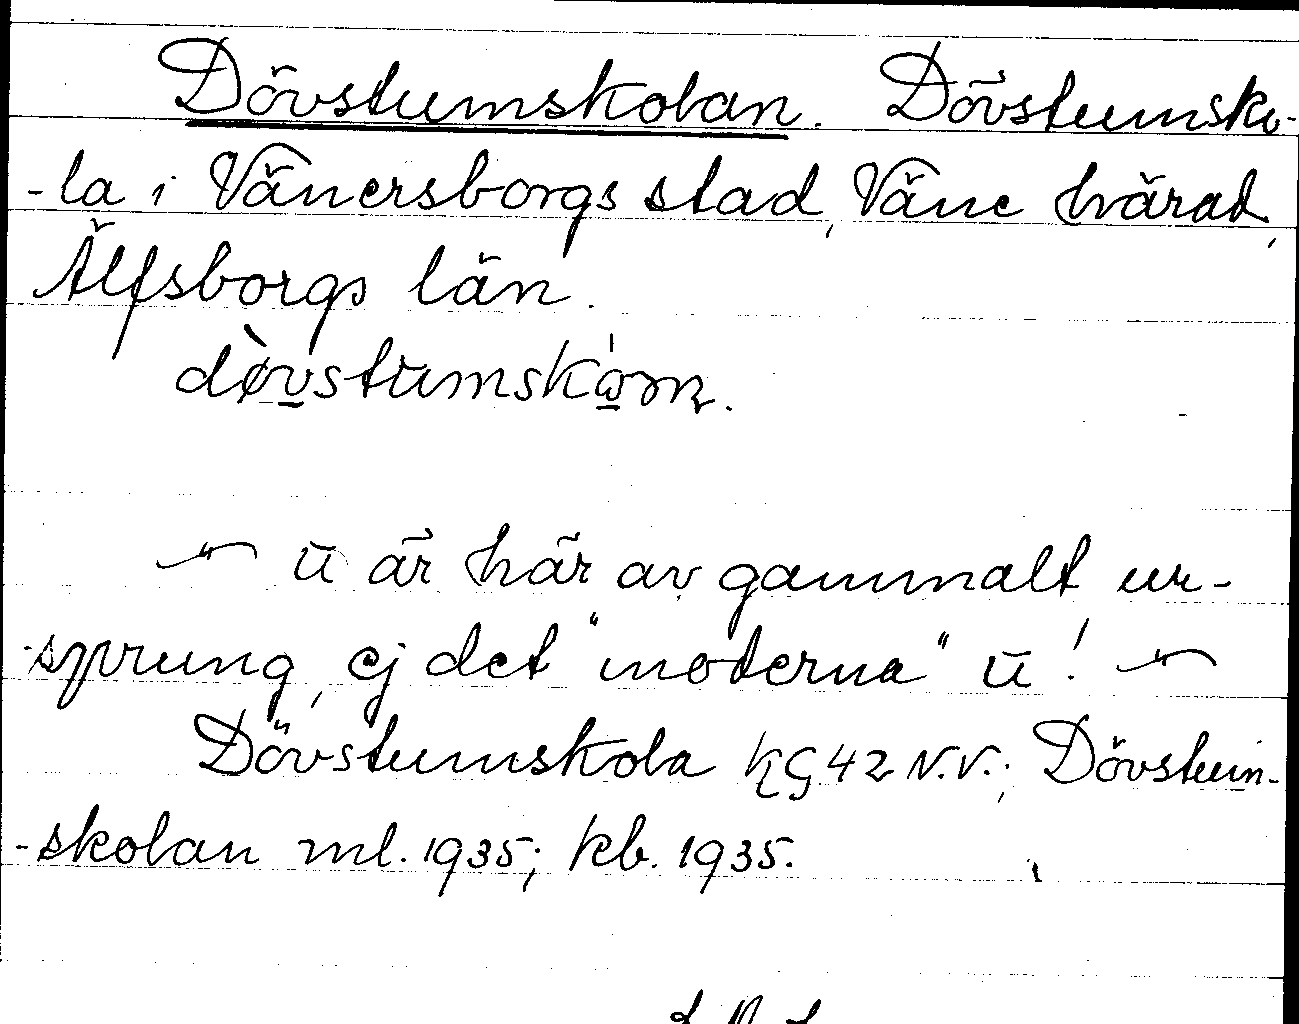 Dövstumskolan. Dövstumsko-
-la i Vänersborgs stad, Väne härad,
Älfsborgs län.
– ū är här av gammalt ur-
-sprung, ej det "moderna" ū! –
Dövstumskola KG 42 N.V.; Dövstum-
-skolan ml. 1935; kb. 1935.